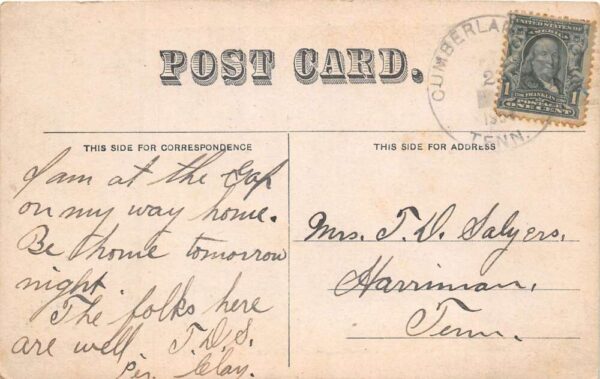 POST CARD.
CUMBERLA
TENN.
UNITED STATES OF
AMERICA
FRANKLIN
POSTAGE
1 ONE CENT 1
THIS SIDE FOR CORRESPONDENCE
THIS SIDE FOR ADDRESS
I am at the Gap
on my way home.
Be home tomorrow
night.
The folks here
are well. T.D.S.
Per. Clay.
Mrs. T. D. Salyers,
Harriman,
Tenn.